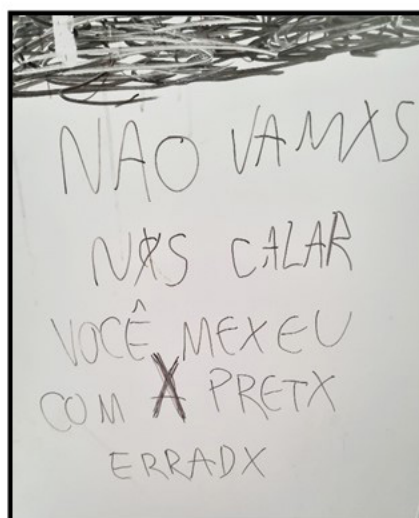 NÃO VAMXS
NXS CALAR
VOCÊ MEXEU
COM X PRETX
ERRADX